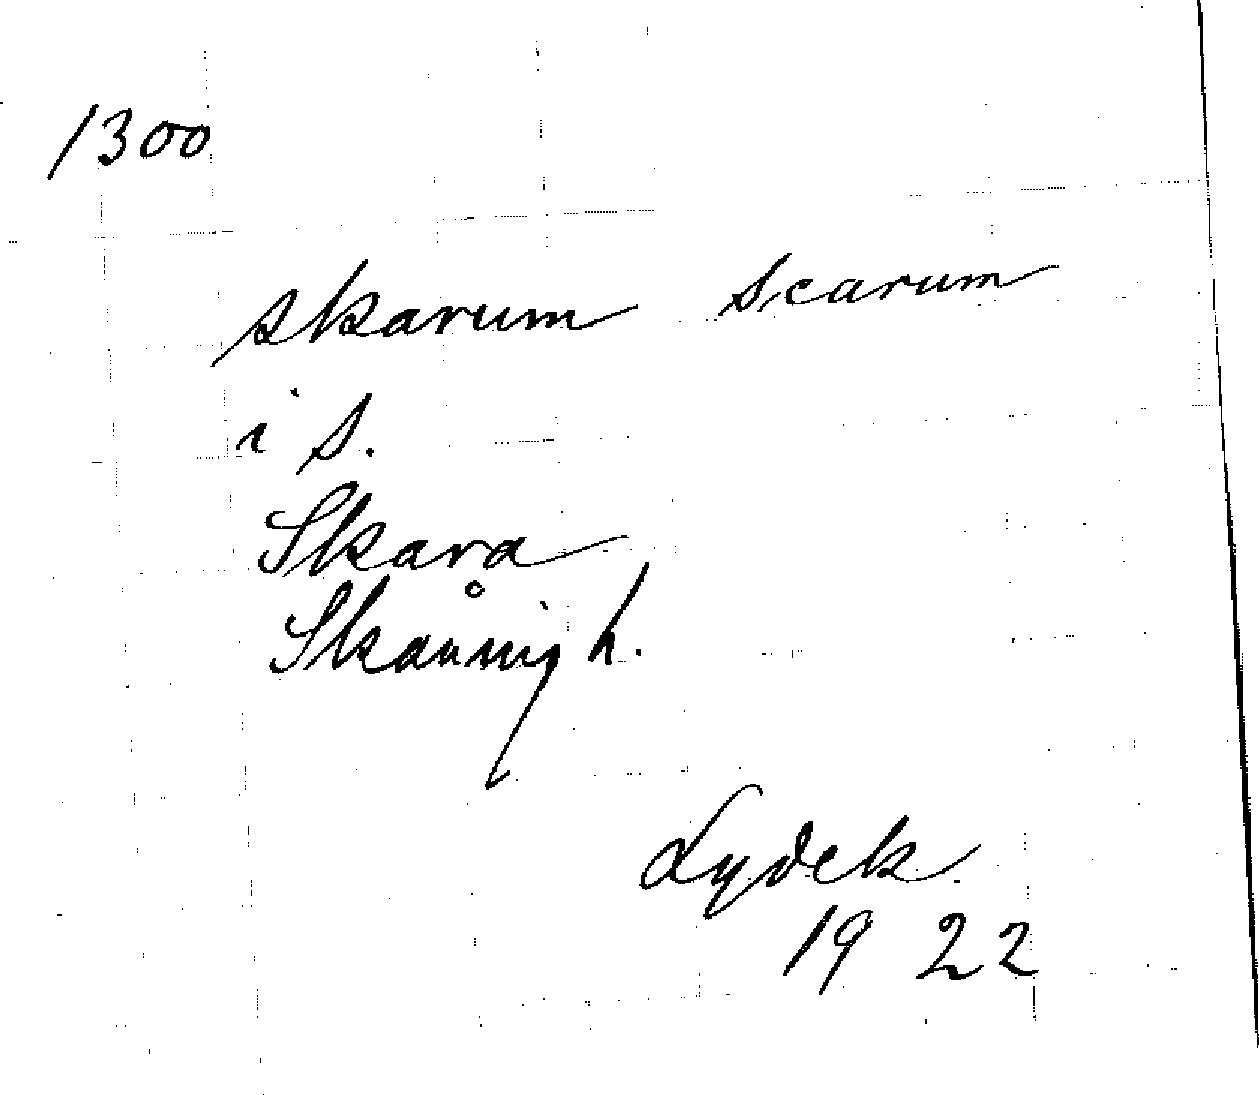 1300
skarum scarum
i s.
Skara
Skånings h.
Lydek
19 22